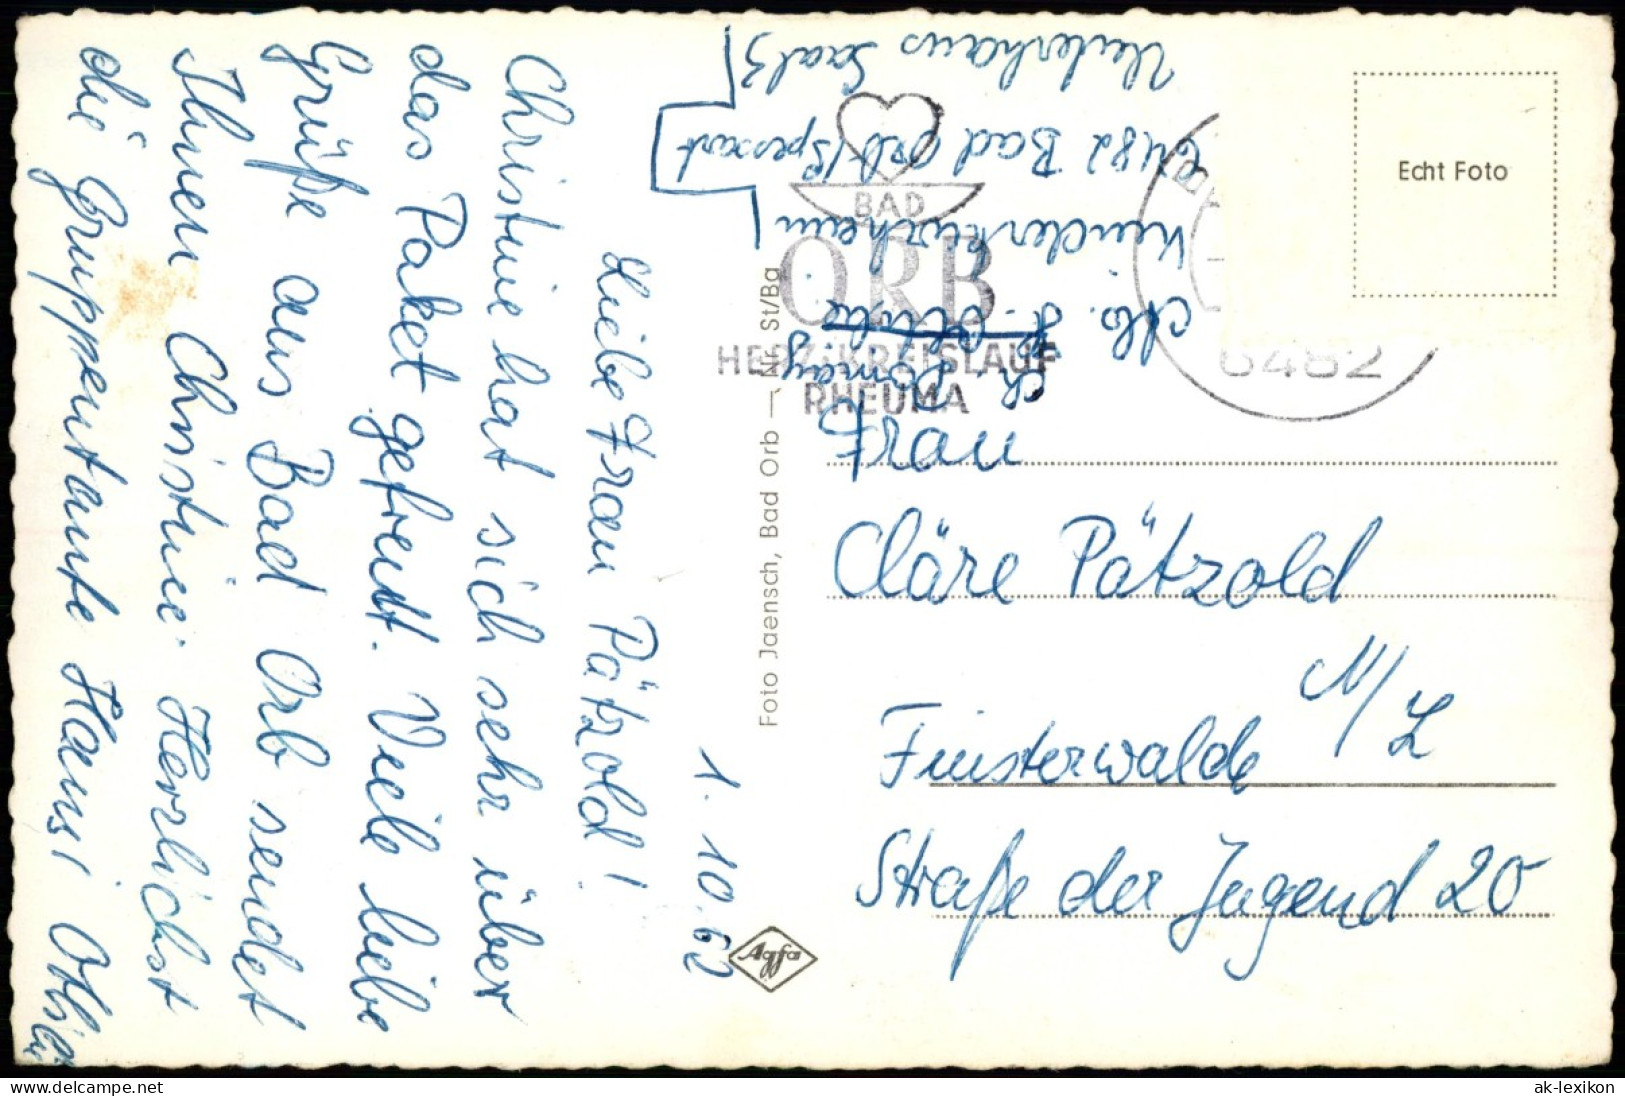 1. 10. 62
Liebe Frau Pätzold!
Christine hat sich sehr über
das Paket gefreut. Viele liebe
Grüße aus Bad Orb sendet
Ihnen Christine. Herzlichst
die Gruppentante Hansi
Kinderkurheim
6482 Bad Orb/Spessart
Saal 3
BAD
ORB
HERZ-KREISLAUF
RHEUMA
6482
Echt Foto
Foto Jaensch, Bad Orb — Nr. St/Ba
Agfa
Cläre Pätzold
Finsterwalde N/L
Straße der Jugend 20
www.delcampe.net
ak-lexikon